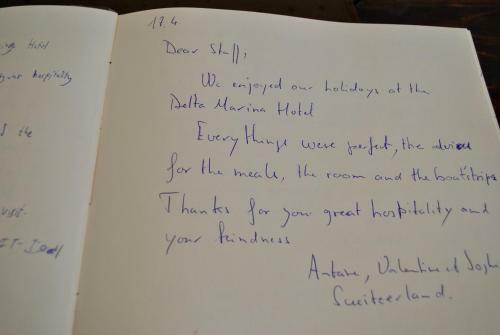 Hotel
your hospitality
the
visit.
17.4
Dear Staff,
We enjoyed our holidays at the
Delta Marina Hotel
Everythings were perfect, the
for the meals, the room and the boatstrips
Thanks for your great hospitality and
your kindness
Antoine, Valentine et Sophie
Switzerland.